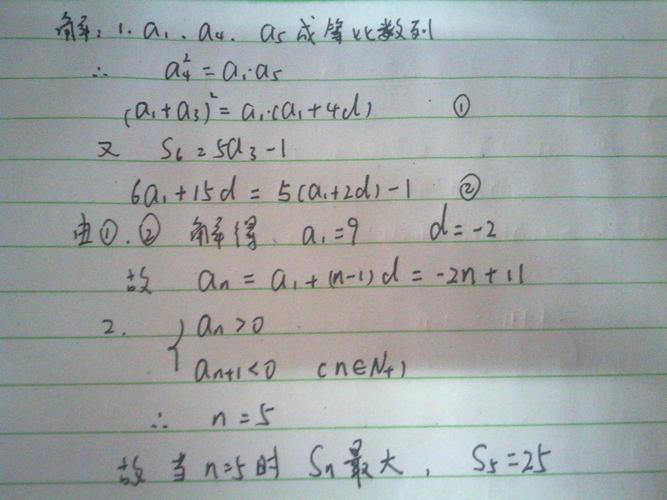 解:1. a₁、a₄、a₅成等比数列
∴ a₄² = a₁·a₅
(a₁+a₃)² = a₁·(a₁+4d) ①
又 S₆ = 5a₃-1
6a₁+15d = 5(a₁+2d)-1 ②
由①、② 解得 a₁=9 d=-2
故 aₙ = a₁+(n-1)d = -2n+11
2. { aₙ>0
aₙ₊₁<0 (n∈N₊)
∴ n=5
故当n=5时 Sₙ最大, S₅=25